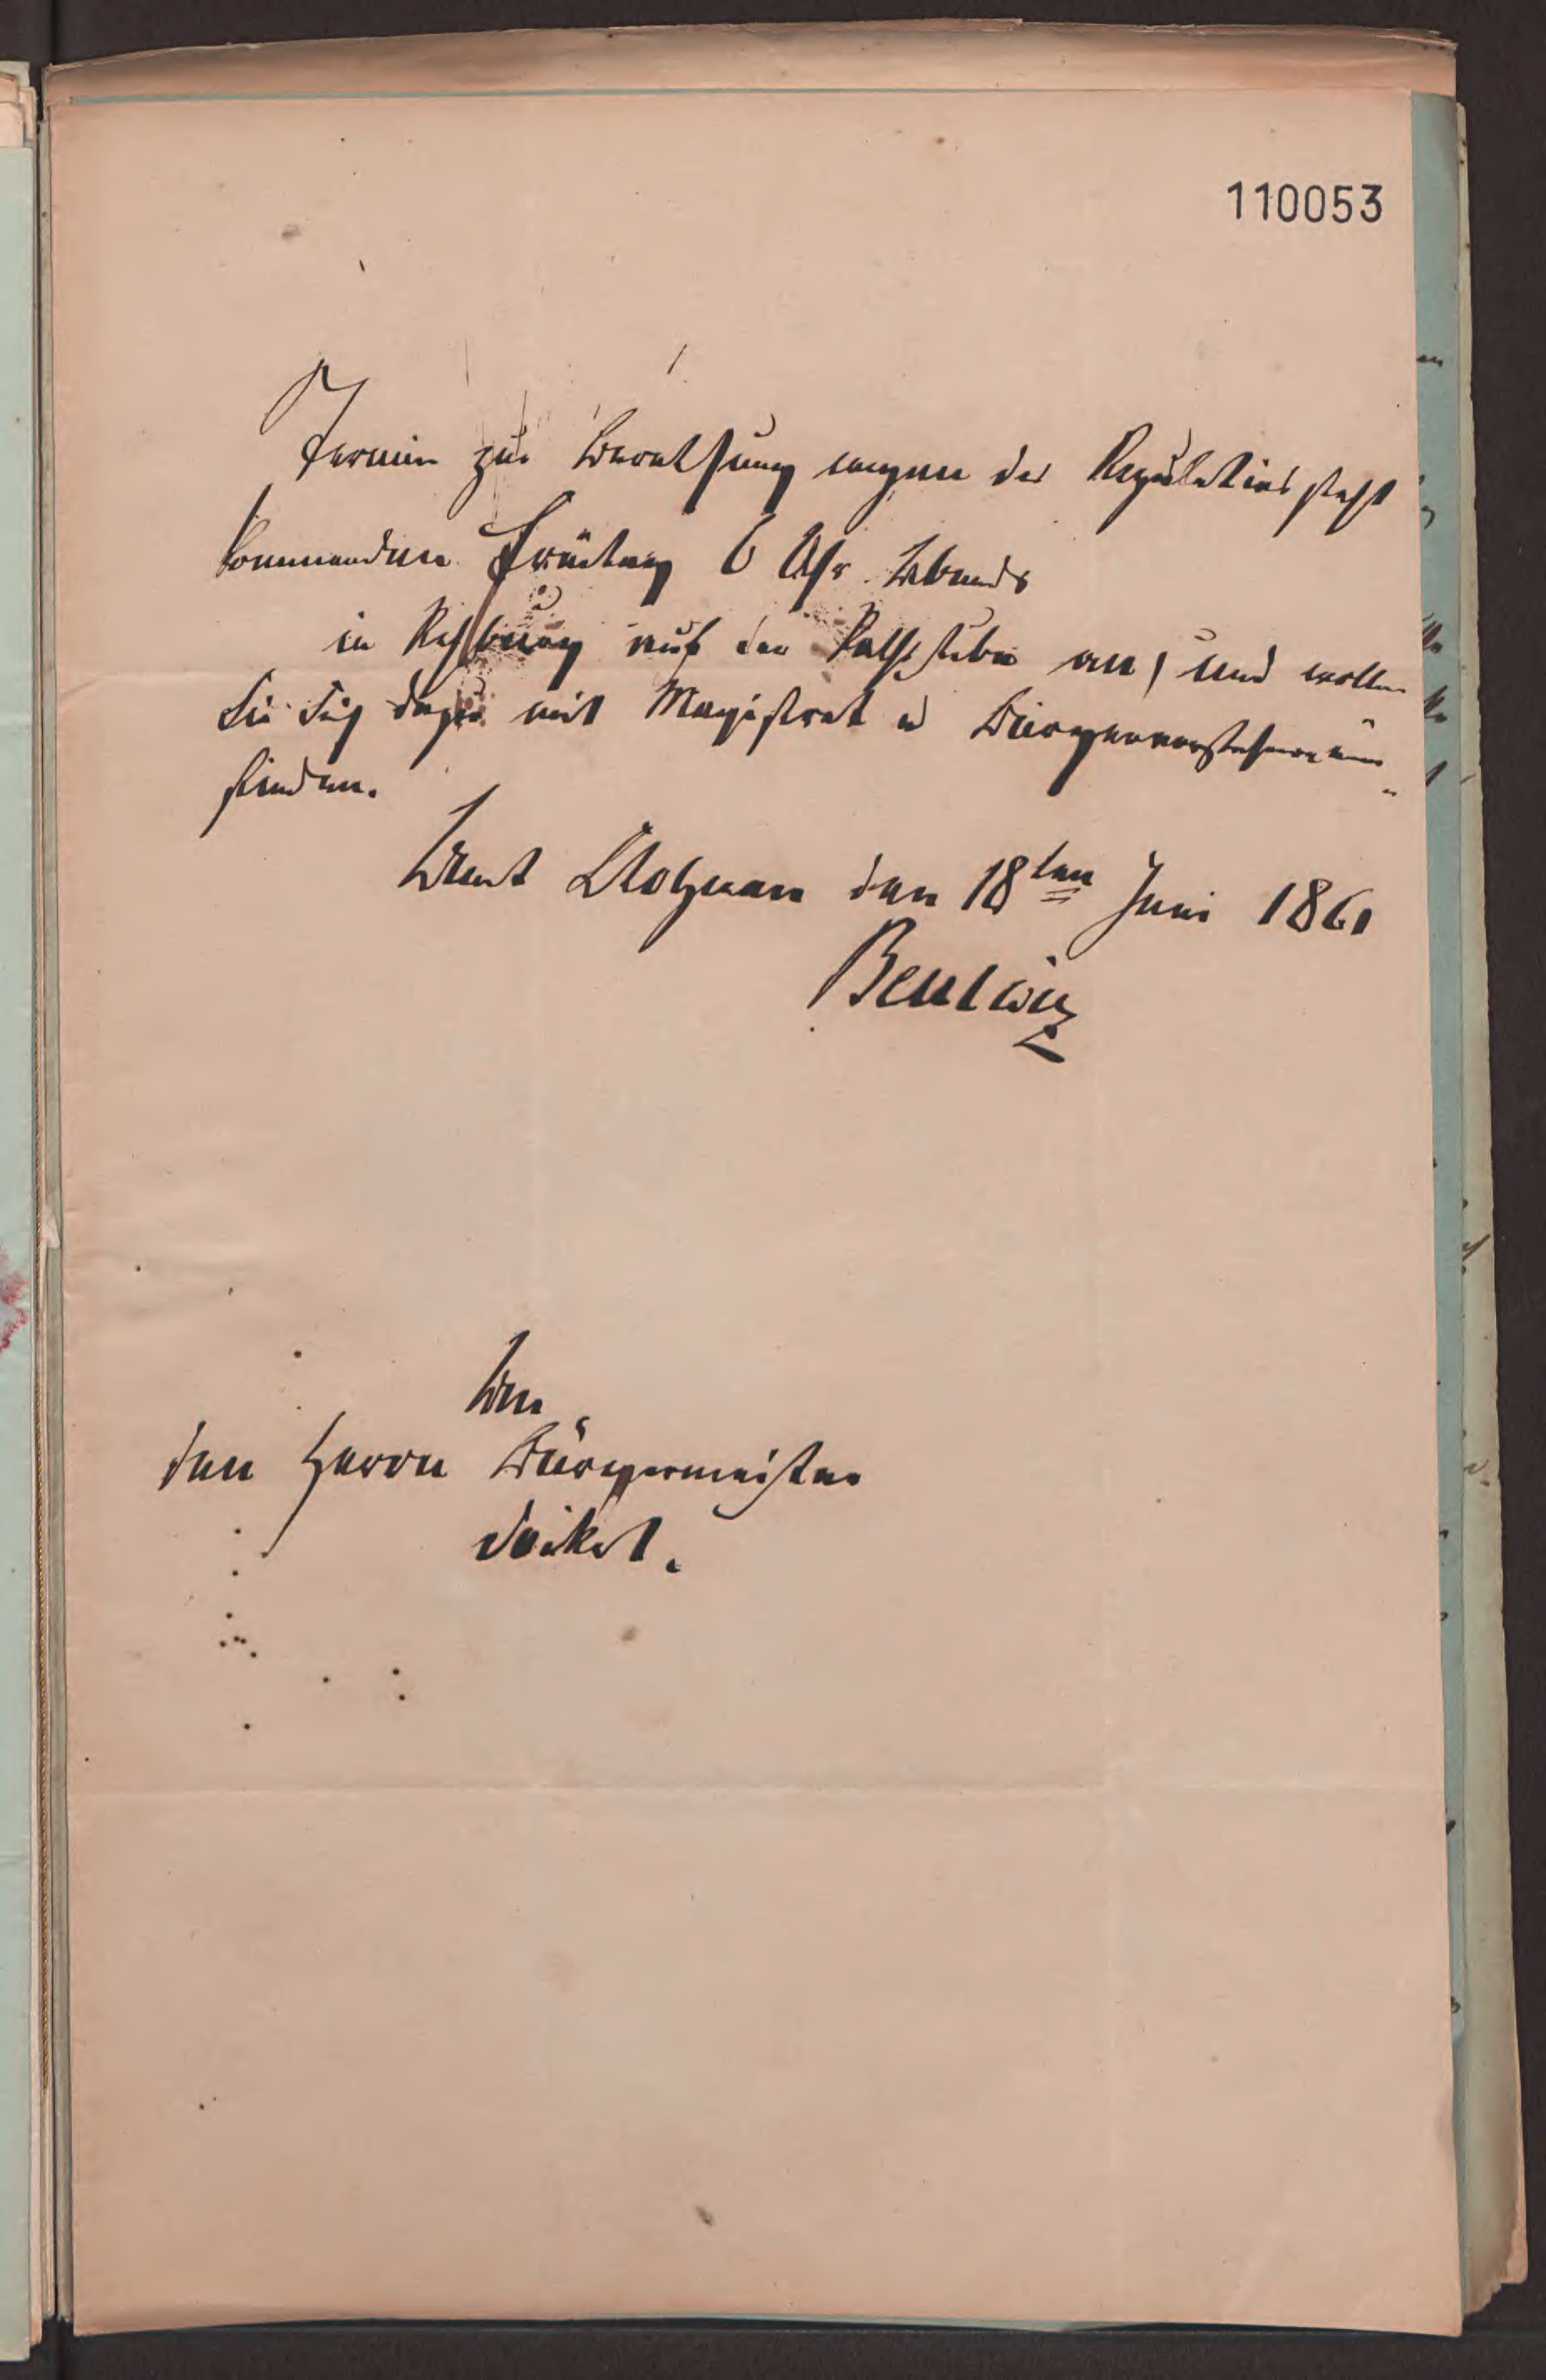 110053
Termin zur Berathung wegen des Regulativs steht
kommenden Freitag 6 Uhr Abends
in Rehburg auf der Rathsstube an, und wollen
Sie Sich dazu mit Magistrat u Bürgervorstehern ein-
finden.
Amt Stolzenau den 18ten Juni 1861
Beulwitz
An
den Herrn Bürgermeister